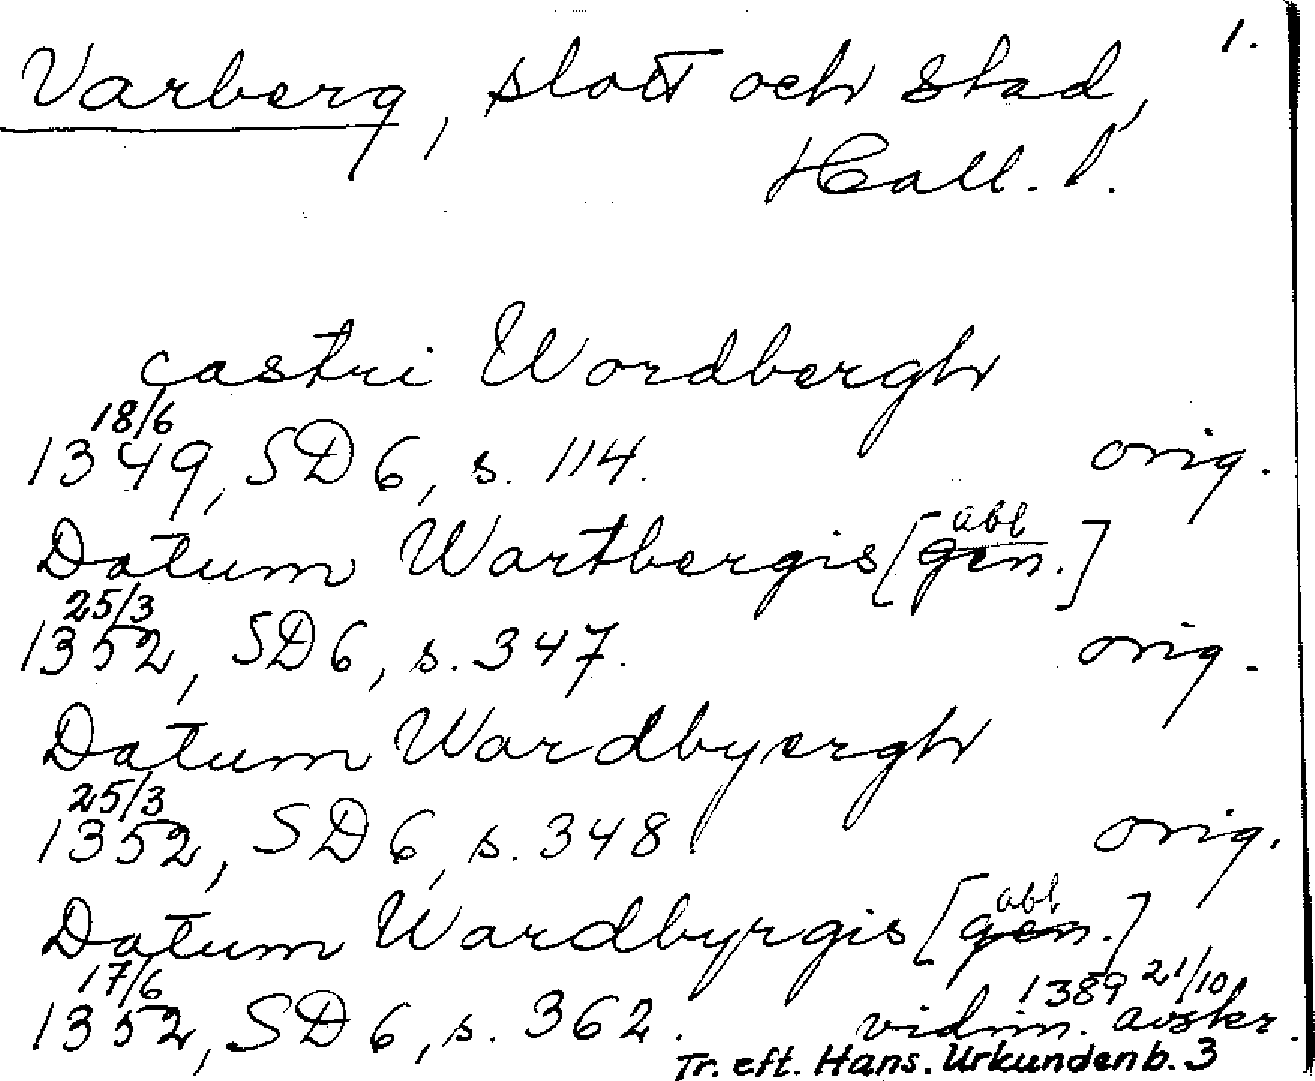 1.
Varberg, slott och stad,
Hall. l.
castri Wordbergh
18/6
1349, SD 6, s. 114. orig.
abl
Datum Wartbergis [gen.]
25/3
1352, SD 6, s. 347. orig.
Datum Wardbyergh
25/3
1352, SD 6, s. 348 orig.
abl
Datum Wardbyrgis [gen.]
17/6 1389 21/10
1352, SD 6, s. 362. vidim. avskr.
Tr. eft. Hans. Urkundenb. 3